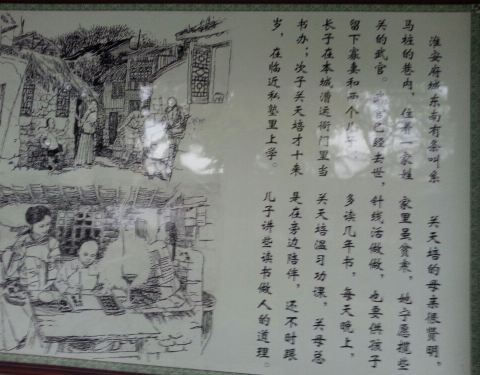 淮安府城东南有条叫系
马桩的巷内，住着一家姓
关的武官。武官已经去世，
留下寡妻和两个儿子：
长子在本城漕运衙门里当
书办；次子关天培才十来
岁，在临近私塾里上学。
关天培的母亲很贤明，
家里虽贫寒，她宁愿揽些
针线活做做，也要供孩子
多读几年书，每天晚上，
关天培温习功课，关母总
是在旁边陪伴，还不时跟
儿子讲些读书做人的道理。